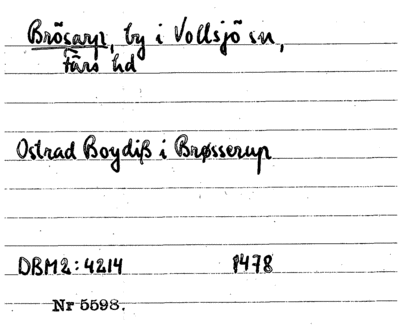 Brösarp, by i Vollsjö sn,
Färs hd
Ostrad Boydiß i Brøsserup
DBM2:4214 1478
Nr 5598.